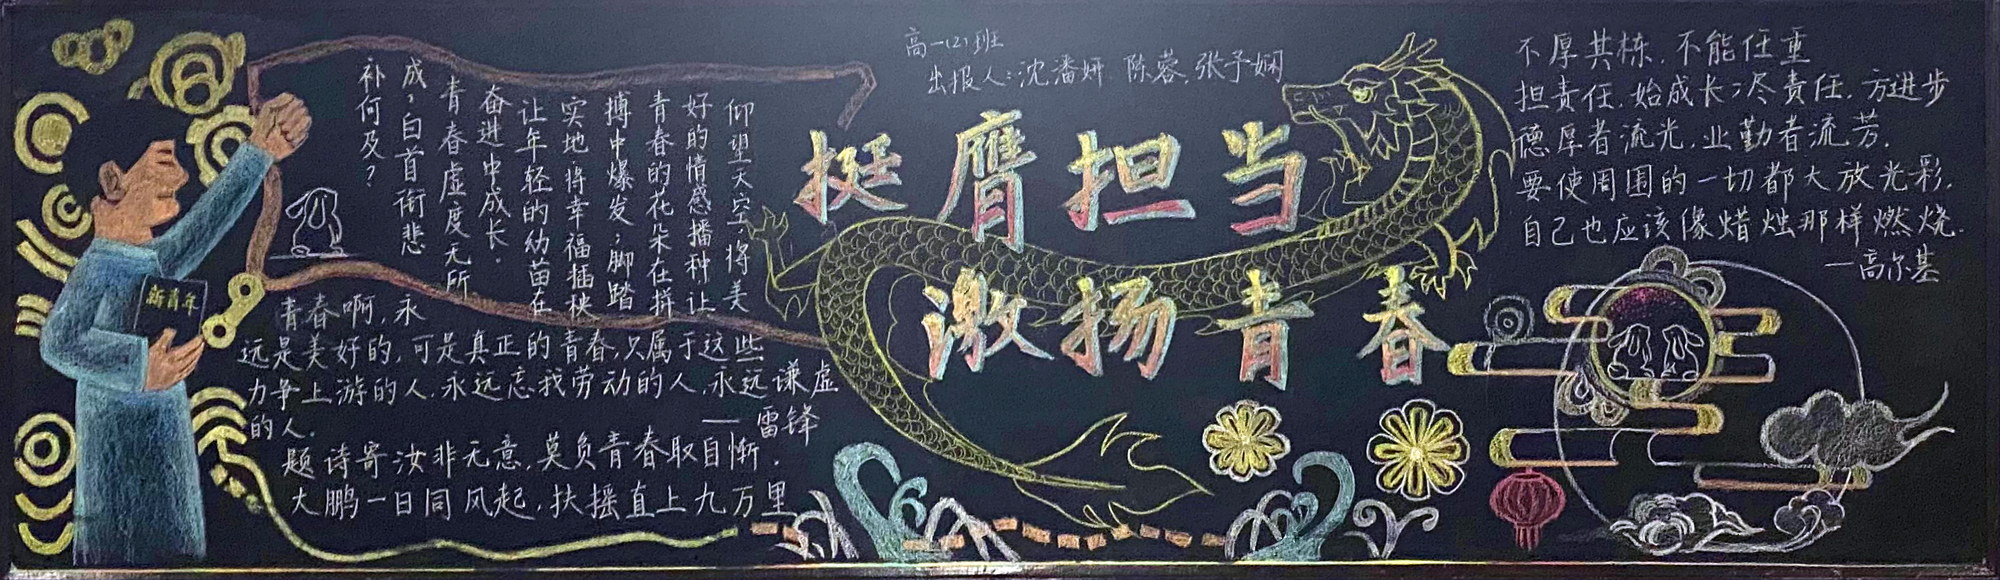 高一(2)班
出报人:沈潘妍 陈蓉,张予娴
挺膺担当
激扬青春
仰望天空,将美
好的情感播种让
青春的花朵在拼
搏中爆发;脚踏
实地,将幸福插秧
让年轻的幼苗在
奋进中成长.
青春虚度无所
成,白首衔悲
补何及?
新青年
青春啊,永
远是美好的,可是真正的青春,只属于这些
力争上游的人,永远忘我劳动的人,永远谦虚
的人.
—雷锋
题诗寄汝非无意,莫负青春取自惭.
大鹏一日同风起,扶摇直上九万里
不厚其栋,不能任重
担责任,始成长;尽责任,方进步
德厚者流光,业勤者流芳.
要使周围的一切都大放光彩,
自己也应该像蜡烛那样燃烧.
—高尔基